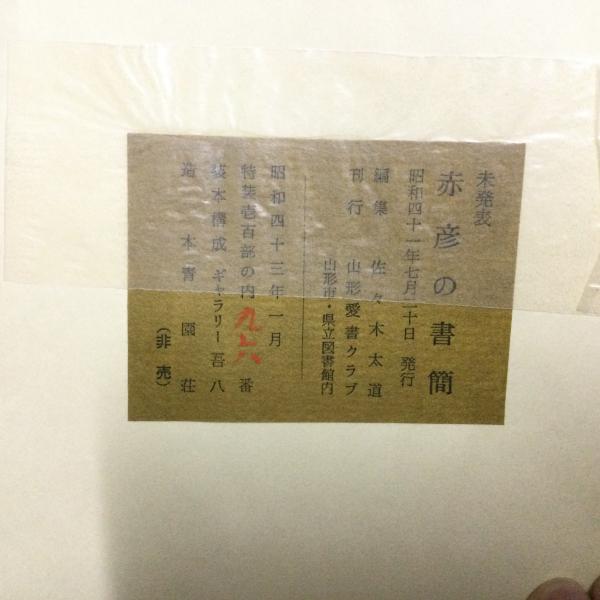 未発表
赤彦の書簡
昭和四十一年七月二十日 発行
編集 佐々木太道
刊行 山形愛書クラブ
山形市・県立図書館内
昭和四十三年一月
特装壱百部の内 番
装本構成 ギャラリー吾八
造本 青園荘
(非売)